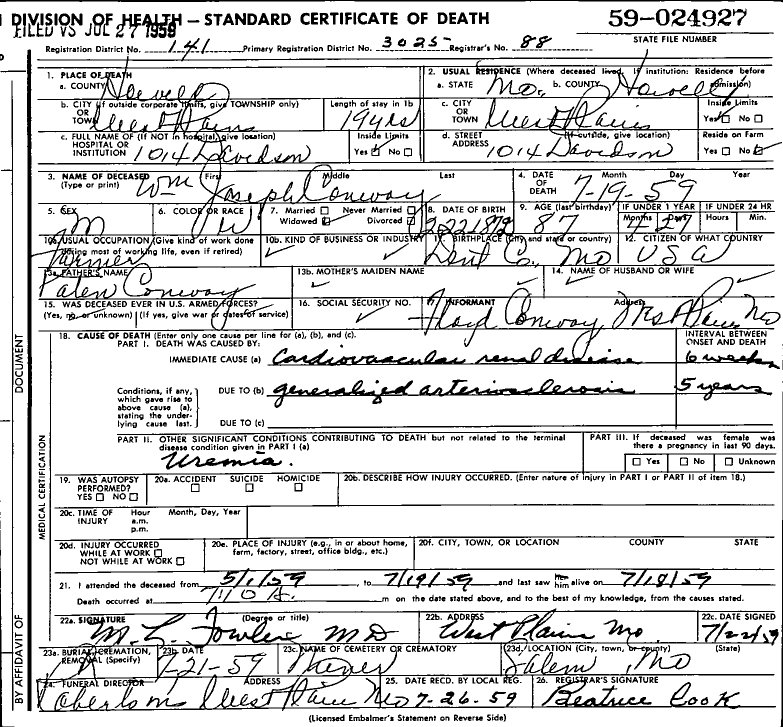 DIVISION OF HEALTH — STANDARD CERTIFICATE OF DEATH 59-024927
FILED VS JUL 27 1959 STATE FILE NUMBER
Registration District No. 141 Primary Registration District No. 3025 Registrar's No. 88
1. PLACE OF DEATH 2. USUAL RESIDENCE (Where deceased lived. If institution: Residence before admission)
a. COUNTY Howell a. STATE Mo. b. COUNTY Howell
b. CITY (If outside corporate limits, give TOWNSHIP only) OR TOWN West Plains Length of stay in 1b 19 yrs c. CITY OR TOWN West Plains Inside Limits Yes No
c. FULL NAME OF (If NOT in hospital, give location) HOSPITAL OR INSTITUTION 1014 Davidson Inside Limits Yes No d. STREET ADDRESS (If outside, give location) 1014 Davidson Reside on Farm Yes No
3. NAME OF DECEASED (Type or print) First Middle Last Wm Joseph Conway 4. DATE OF DEATH Month Day Year 7-19-59
5. SEX M 6. COLOR OR RACE W 7. Married Never Married Widowed Divorced 8. DATE OF BIRTH 2 22 1872 9. AGE (last birthday) 87 IF UNDER 1 YEAR Months Days 4 27 IF UNDER 24 HR Hours Min.
10a. USUAL OCCUPATION (Give kind of work done during most of working life, even if retired) Farmer 10b. KIND OF BUSINESS OR INDUSTRY 11. BIRTHPLACE (City and state or country) Dent Co. Mo 12. CITIZEN OF WHAT COUNTRY USA
13a. FATHER'S NAME Conway 13b. MOTHER'S MAIDEN NAME 14. NAME OF HUSBAND OR WIFE
15. WAS DECEASED EVER IN U.S. ARMED FORCES? (Yes, no, or unknown) (If yes, give war or dates of service) 16. SOCIAL SECURITY NO. 17. INFORMANT Address Floyd Conway Plains Mo
18. CAUSE OF DEATH (Enter only one cause per line for (a), (b), and (c). INTERVAL BETWEEN ONSET AND DEATH
PART I. DEATH WAS CAUSED BY:
IMMEDIATE CAUSE (a) Cardiovascular renal disease 6 weeks
Conditions, if any, which gave rise to above cause (a), stating the underlying cause last. DUE TO (b) generalized arteriosclerosis 5 years
DUE TO (c)
PART II. OTHER SIGNIFICANT CONDITIONS CONTRIBUTING TO DEATH but not related to the terminal disease condition given in PART I (a) Uremia. PART III. If deceased was female was there a pregnancy in last 90 days. Yes No Unknown
19. WAS AUTOPSY PERFORMED? YES NO 20a. ACCIDENT SUICIDE HOMICIDE 20b. DESCRIBE HOW INJURY OCCURRED. (Enter nature of injury in PART I or PART II of item 18.)
20c. TIME OF INJURY Hour a.m. p.m. Month, Day, Year
20d. INJURY OCCURRED WHILE AT WORK NOT WHILE AT WORK 20e. PLACE OF INJURY (e.g., in or about home, farm, factory, street, office bldg., etc.) 20f. CITY, TOWN, OR LOCATION COUNTY STATE
21. I attended the deceased from 5/1/59, to 7/19/59 and last saw her him alive on 7/18/59
Death occurred at 7:10 A. m on the date stated above, and to the best of my knowledge, from the causes stated.
22a. SIGNATURE (Degree or title) M. L. Fowler MD 22b. ADDRESS West Plains Mo. 22c. DATE SIGNED 7/22/59
23a. BURIAL, CREMATION, REMOVAL (Specify) 23b. DATE 7-21-59 23c. NAME OF CEMETERY OR CREMATORY 23d. LOCATION (City, town, or county) (State) Salem, Mo
24. FUNERAL DIRECTOR ADDRESS Robertsons West Plains Mo 25. DATE RECD. BY LOCAL REG. 7-26-59 26. REGISTRAR'S SIGNATURE Beatrice Cook
(Licensed Embalmer's Statement on Reverse Side)
DOCUMENT
MEDICAL CERTIFICATION
BY AFFIDAVIT OF